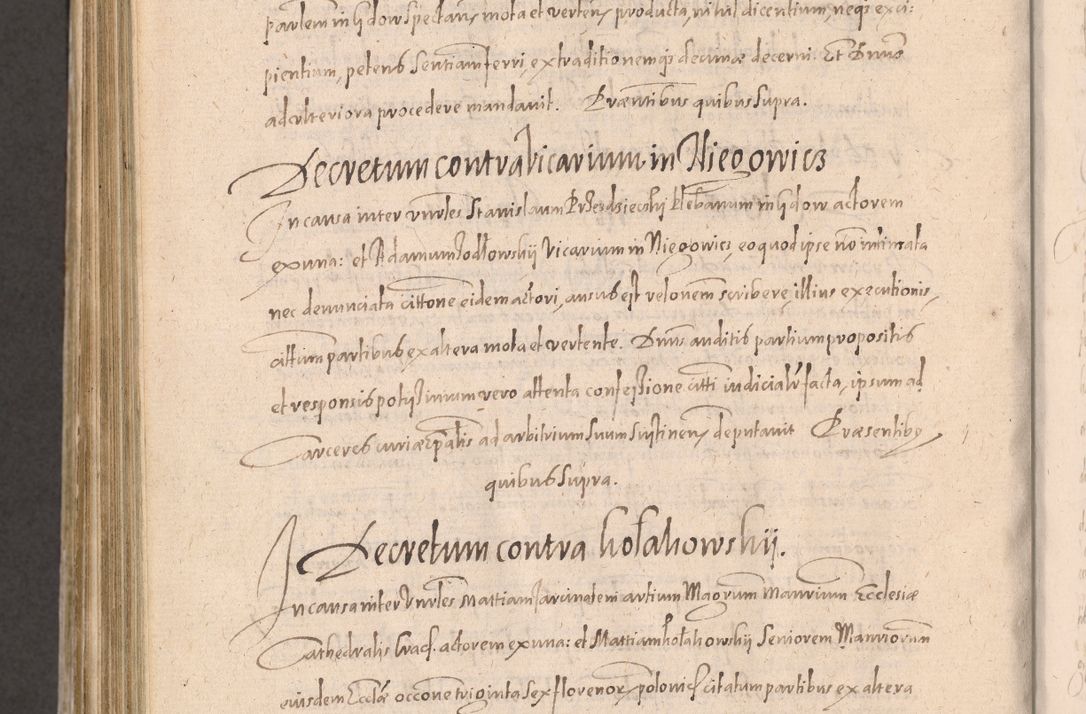 partem in Gdow spectan, mota et verten, producta, nihil dicentium, neq3 exci:
pientium, petens sentiam ferri, extraditionemq3 decimæ decerni. Et Dnus
ad ulteriora procedere mandavit. Præntibus quibus supra.
Decretum contra Vicarium in Niegowicz
In causa inter Vnrles Stanislaum Przerdziecskij plebanum in Gdow actorem
ex una: et Adamum Jodłowskij Vicarium in Niegowicz, eo quod ipse nō intimata
nec denunciata cittone eidem actori, ausus est relonem scribere, illius executionis,
cittum partibus ex altera mota et vertente. Dnus auditis partium propositis
et responsis potissimum vero attenta confessione citti iudicialr facta, ipsum ad
Carceres curiæ Epalis ad arbitrium suum sustinen, deputavit Præsentibus
quibus supra.
Decretum contra Kołakowskij.
In causa inter Vnrles Mattiam Jarcinateni artium Magorum Manrium Ecclesiæ
Cathedralis Crac. actorem ex una: et Mattiam Kołakowskij Seniorem Manriorum
eiusdem Ecclæ occone triginta sex florenor, polonic. citatum partibus ex altera